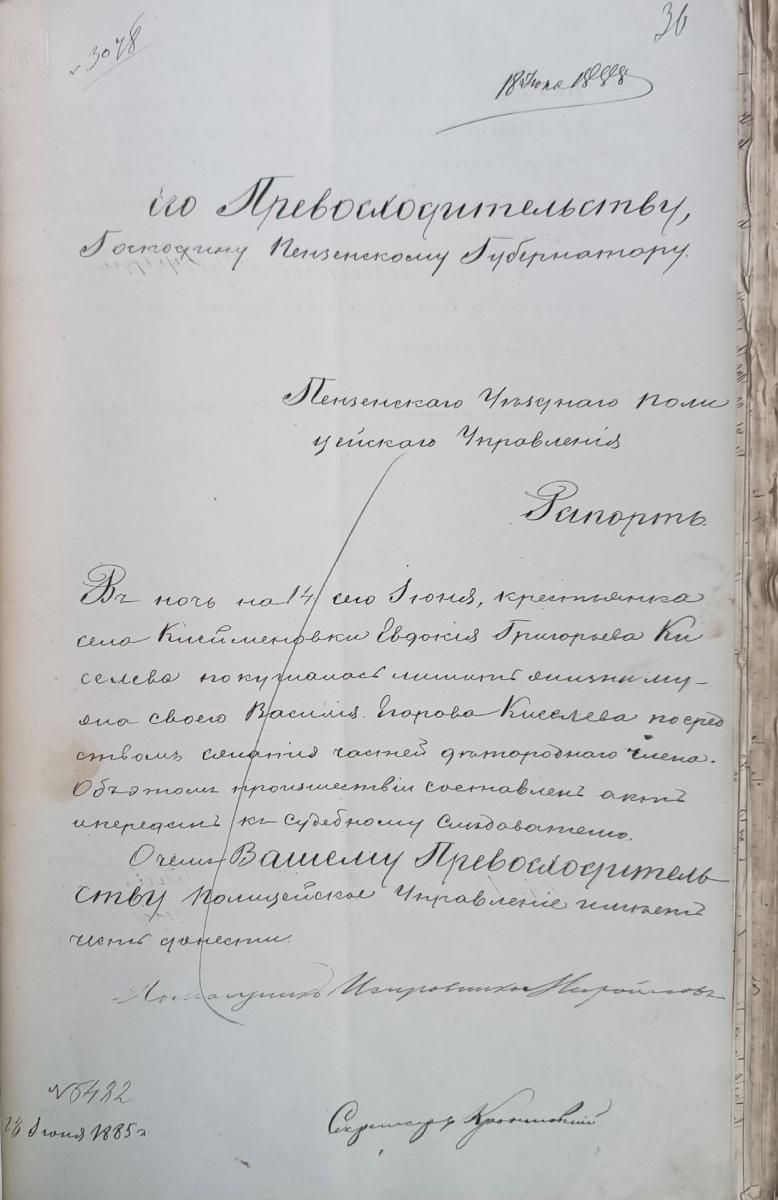 № 3078
36
18 Июня 1888
Его Превосходительству,
Господину Пензенскому Губернатору.
Пензенскаго Уѣзднаго Поли
цейскаго Управленія
Рапортъ.
Въ ночь на 14 сего Іюня, крестьянка
села Кисйменовки Евдокія Григорьева Ки
селева покушалась лишить жизни му-
жа своего Василія Егорова Киселева посред
ствомъ сжатія частей дѣтороднаго члена.
Объ этомъ произшествіи составленъ актъ
и переданъ къ Судебному Слѣдователю.
О чемъ Вашему Превосходитель
ству Полицейское Управленіе имѣетъ
честь донести.
Исправника
№ 5422
Іюня 1885 г
Секретарь